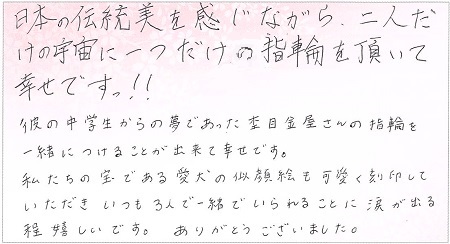 日本の伝統美を感じながら、二人だ
けの宇宙に一つだけの指輪を頂いて
幸せですっ!!
彼の中学生からの夢であった杢目金屋さんの指輪を
一緒につけることが出来て幸せです。
私たちの宝である愛犬の似顔絵も可愛く刻印して
いただき いつも3人で一緒でいられることに 涙が出る
程 嬉しいです。 ありがとうございました。